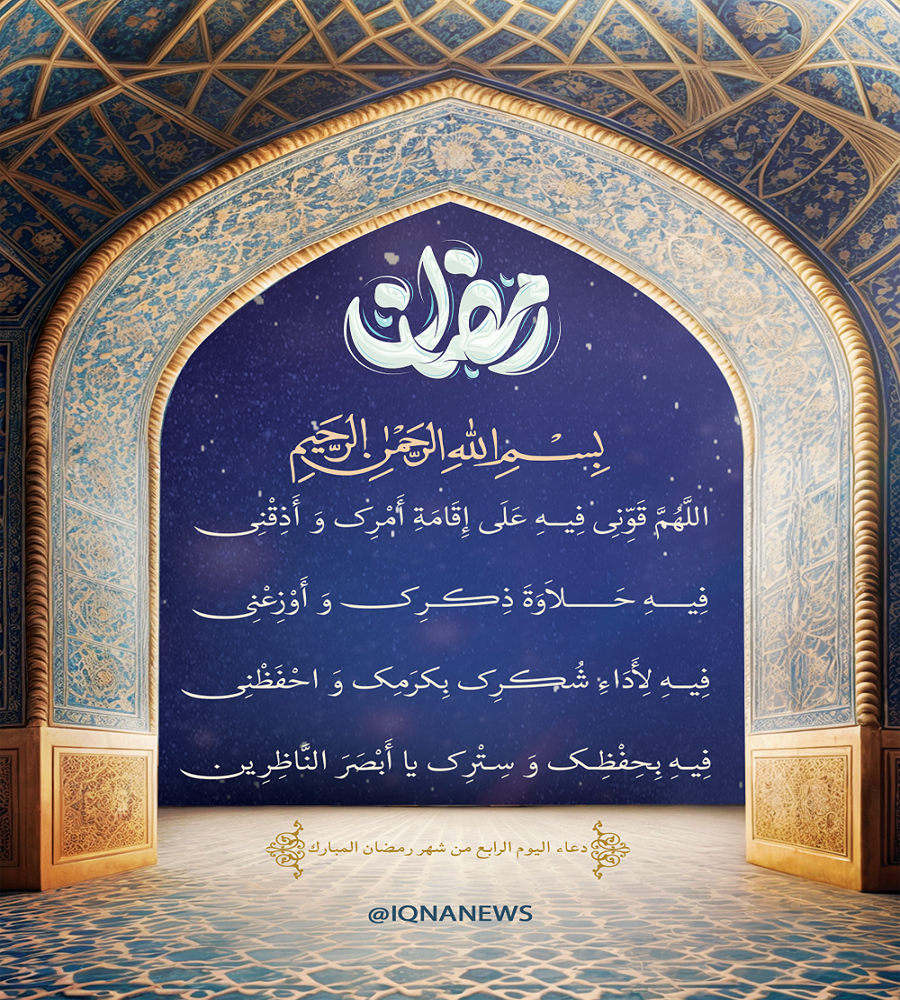 رمضان
بِسْمِ اللهِ الرَّحْمٰنِ الرَّحِيمِ
اللَّهُمَّ قَوِّنِی فِیهِ عَلَی إِقَامَةِ أَمْرِک وَ أَذِقْنِی
فِیهِ حَلاَوَةَ ذِکرِک وَ أَوْزِعْنِی
فِیهِ لِأَدَاءِ شُکرِک بِکرَمِک وَ احْفَظْنِی
فِیهِ بِحِفْظِک وَ سِتْرِک یا أَبْصَرَ النَّاظِرِین
دعاء اليوم الرابع من شهر رمضان المبارك
@IQNANEWS